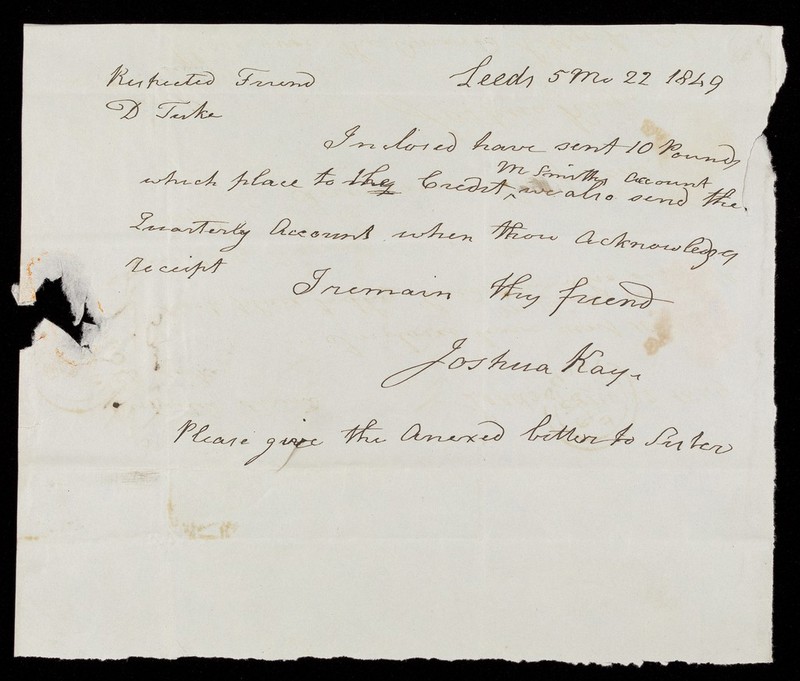 Leeds 5 Mo 22 1849
Respected Friend
D Tuke
Inclosed have sent 10 Pounds
which place to thy Credit M Smiths account we also send the
Quarterly Account when thou acknowledges
receipt
I remain thy friend
Joshua Kay.
Please give the Anexed letter to Sister